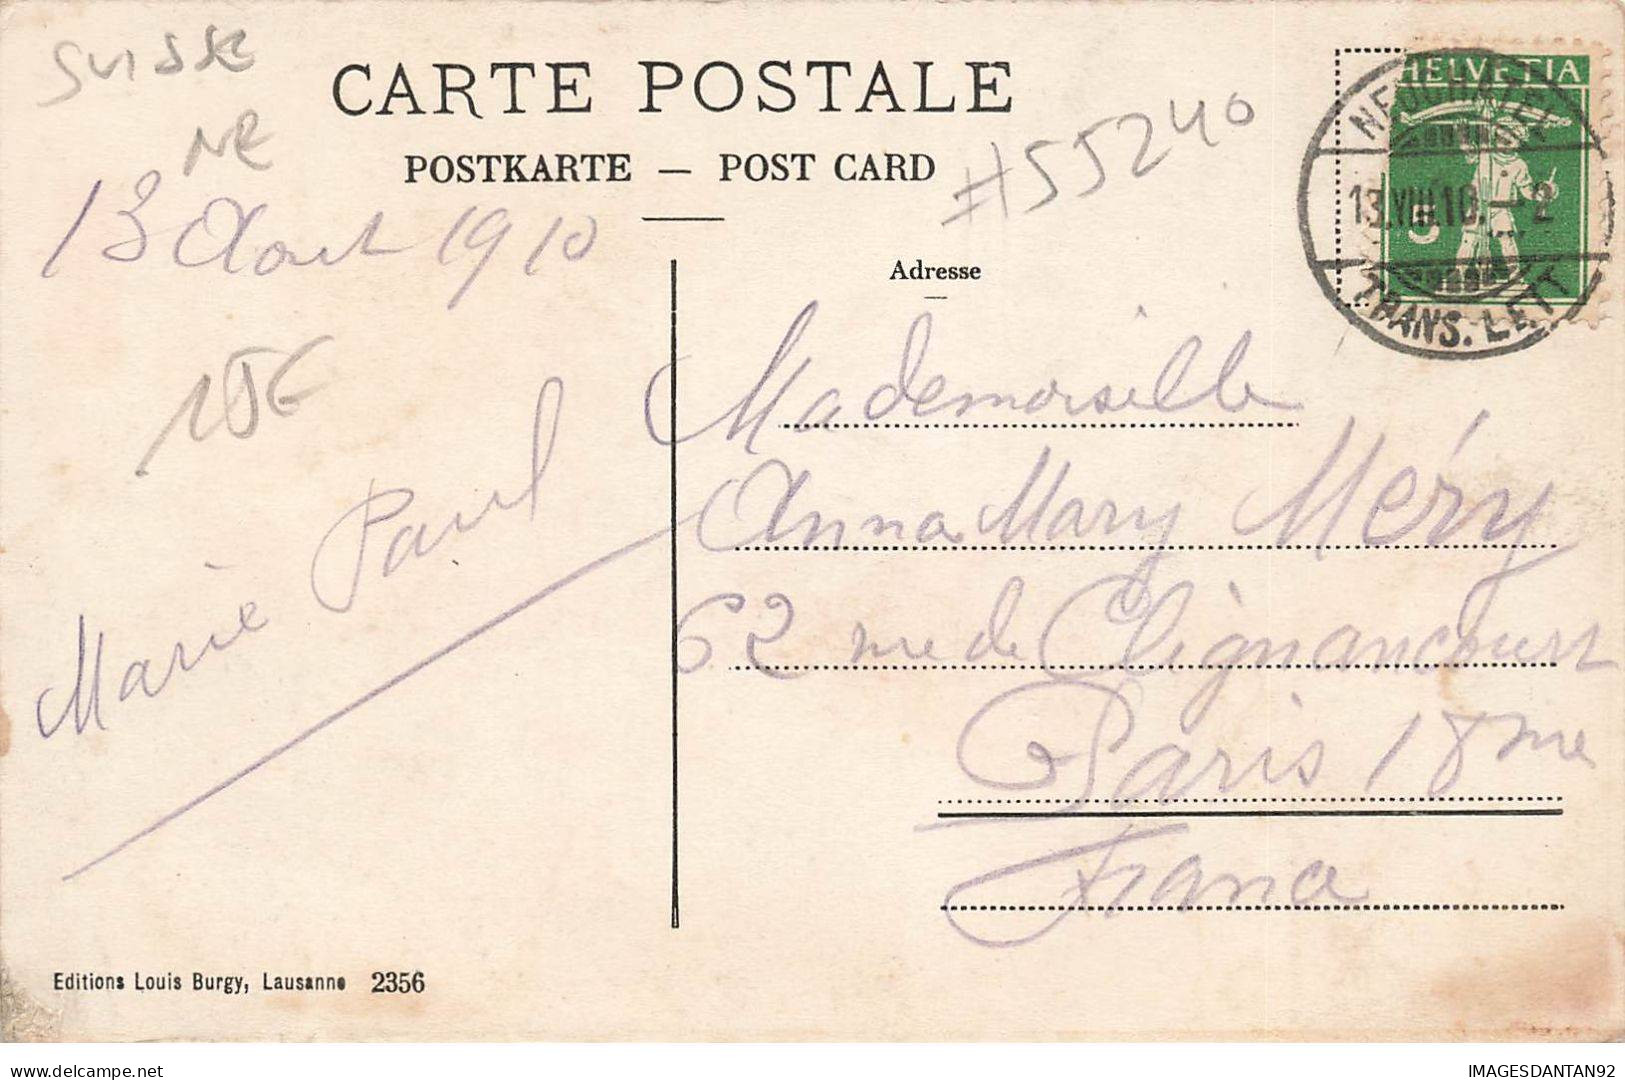 SUISSE
NE
CARTE POSTALE
POSTKARTE — POST CARD
#55240
HELVETIA
5
NEUCHATEL
13.VIII.10.—2
TRANS. LETT
13 Aout 1910
15€
Marie Paul
Adresse
Mademoiselle
Anna Mary Méry
62 rue de Clignancourt
Paris 18me
France
Editions Louis Burgy, Lausanne 2356
delcampe.net
IMAGESDANTAN92